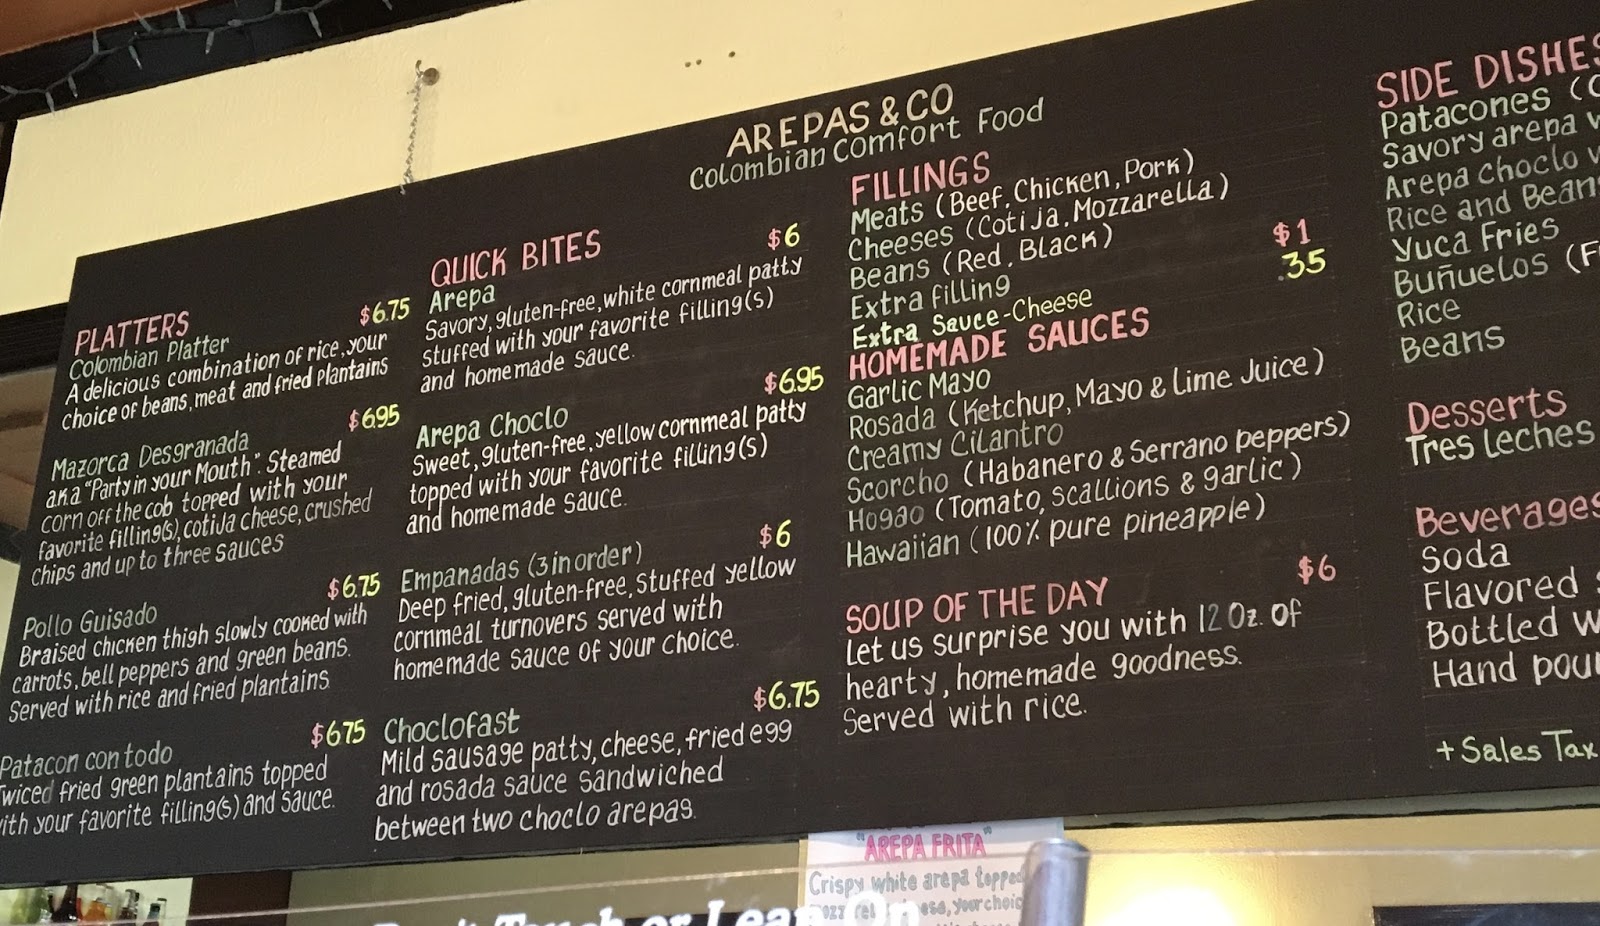 AREPAS & CO
Colombian Comfort Food
PLATTERS
Colombian Platter $6.75
A delicious combination of rice, your
choice of beans, meat and fried plantains
Mazorca Desgranada $6.95
a.k.a "Party in your Mouth". Steamed
corn off the cob topped with your
favorite filling(s), cotija cheese, crushed
chips and up to three sauces
Pollo Guisado $6.75
Braised chicken thigh slowly cooked with
carrots, bell peppers and green beans.
Served with rice and fried plantains
Patacon con todo $6.75
Twiced fried green plantains topped
with your favorite filling(s) and sauce.
QUICK BITES
Arepa $6
Savory, gluten-free, white cornmeal patty
stuffed with your favorite filling(s)
and homemade sauce.
Arepa Choclo $6.95
Sweet, gluten-free, yellow cornmeal patty
topped with your favorite filling(s)
and homemade sauce.
Empanadas (3 in order) $6
Deep fried, gluten-free, stuffed yellow
cornmeal turnovers served with
homemade sauce of your choice.
Choclofast $6.75
Mild sausage patty, cheese, fried egg
and rosada sauce sandwiched
between two choclo arepas.
FILLINGS
Meats (Beef, Chicken, Pork)
Cheeses (Cotija, Mozzarella)
Beans (Red, Black)
Extra filling $1
Extra Sauce-Cheese .35
HOMEMADE SAUCES
Garlic Mayo
Rosada (Ketchup, Mayo & Lime Juice)
Creamy Cilantro
Scorcho (Habanero & Serrano peppers)
Hogao (Tomato, scallions & garlic)
Hawaiian (100% pure pineapple)
SOUP OF THE DAY $6
Let us surprise you with 12 Oz. of
hearty, homemade goodness.
Served with rice.
SIDE DISHES
Patacones
Savory arepa
Arepa choclo
Rice and Beans
Yuca Fries
Buñuelos
Rice
Beans
Desserts
Tres Leches
Beverages
Soda
Flavored
Bottled
Hand
+ Sales Tax
"AREPA FRITA"
Crispy white arepa topped
your
Touch or Lean On